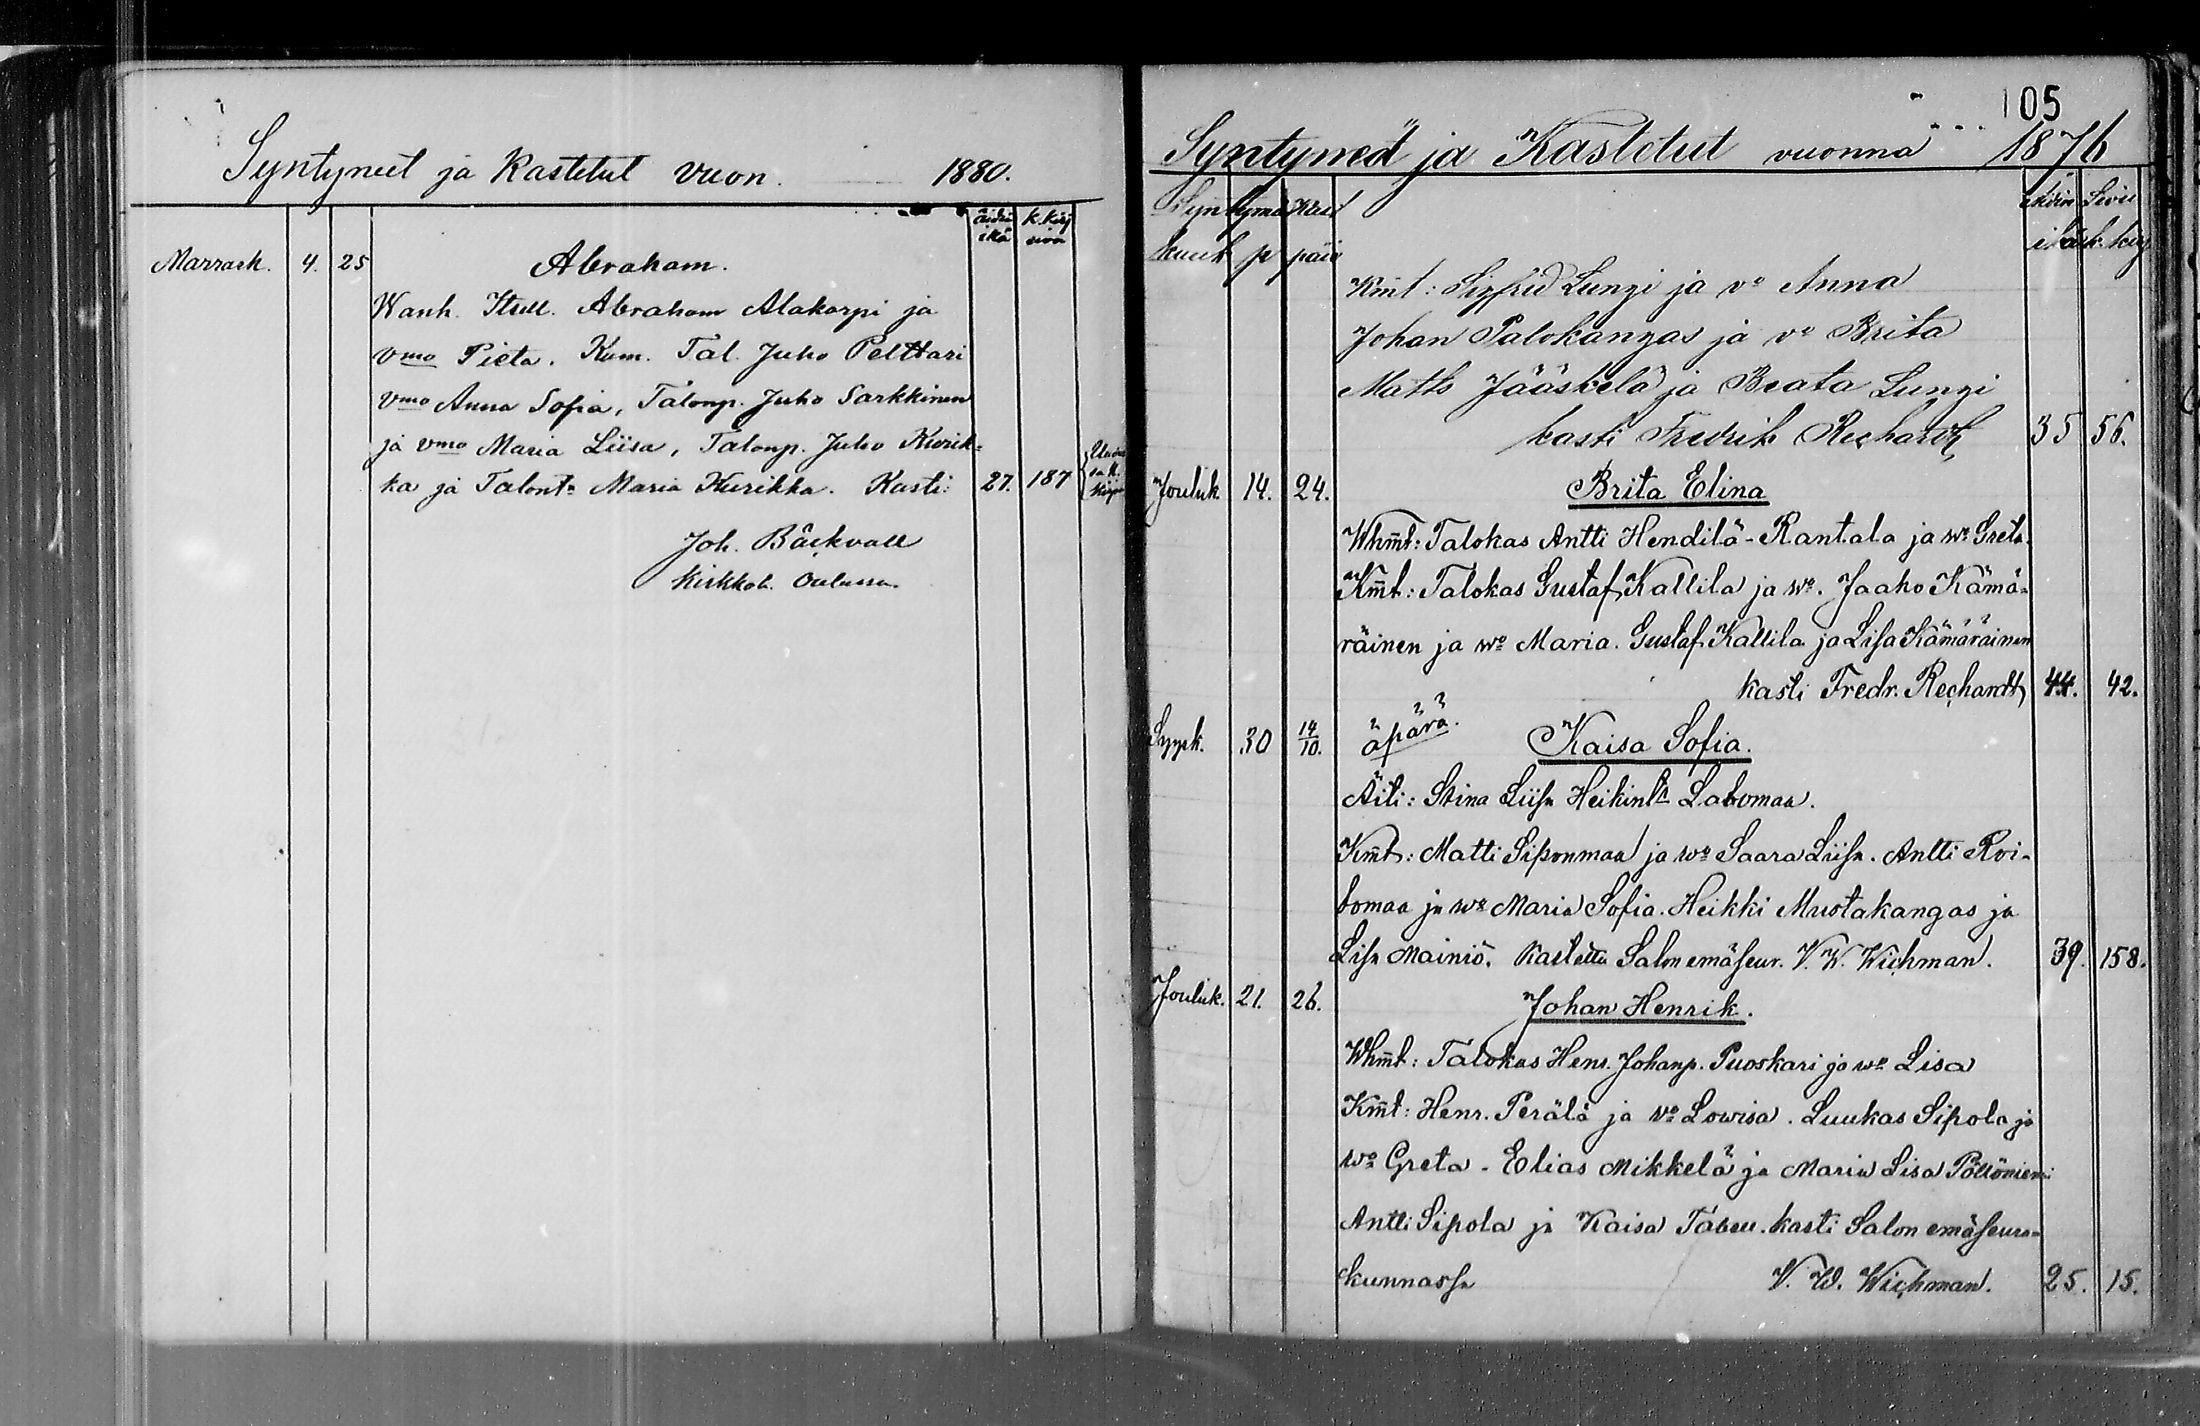 Syntyneet ja Kastetut vuon. 1880.
äidin ikä
k. kirj sivu
Marrask. 4. 25 Abraham.
Wanh. Itsell. Abraham Alakorpi ja
vmo Pieta. Kum. Tal. Juho Pelttari
vmo Anna Sofia, Talonp. Juho Sarkkinen
ja vmo Maria Liisa, Talonp. Juho Kurik-
ka ja Talont. Maria Kurikka. Kasti: 27. 187
Joh. Bäckvall
Kirkkoh. Oulussa.
105
Syntyned ja Kastetut vuonna 1876
Syntymä Kast
kuuk p päiv
äidin ikä
Sivu k. kirj
Kmt: Sigfrid Lungi ja vo Anna
Johan Palokangas ja vo Brita
Matts Jääskelä ja Beata Lungi
kasti Fredrik Rechardt 35 56.
Jouluk. 14. 24. Brita Elina
Whmt: Talokas Antti Hendilä-Rantala ja wo Greta.
Kmt: Talokas Gustaf Kallila ja wo. Jaako Kämä-
räinen ja wo Maria. Gustaf Kallila ja Lisa Kämäräinen
kasti Fredr. Rechardt 44. 42.
Syysk. 30 14/10. äpärä. Kaisa Sofia.
Äiti: Stina Liisa Heikint. Labomaa.
Kmt: Matti Siponmaa ja wo Saara Liisa. Antti Roi-
tomaa ja wo Maria Sofia. Heikki Mustakangas ja
Lisa Mainiö. Kastettu Salon emäseur. V. W. Wichman. 39. 158.
Jouluk. 21. 26. Johan Henrik.
Whmt: Talokas Henr. Johanp. Puoskari ja wo Lisa
Kmt: Henr. Perälä ja vo Lowisa. Luukas Sipola ja
wo Greta. Elias Mikkelä ja Maria Lisa Pöllöniemi
Antti Sipola ja Kaisa kasti Salon emäseura-
kunnassa V. W. Wichman. 25. 15.